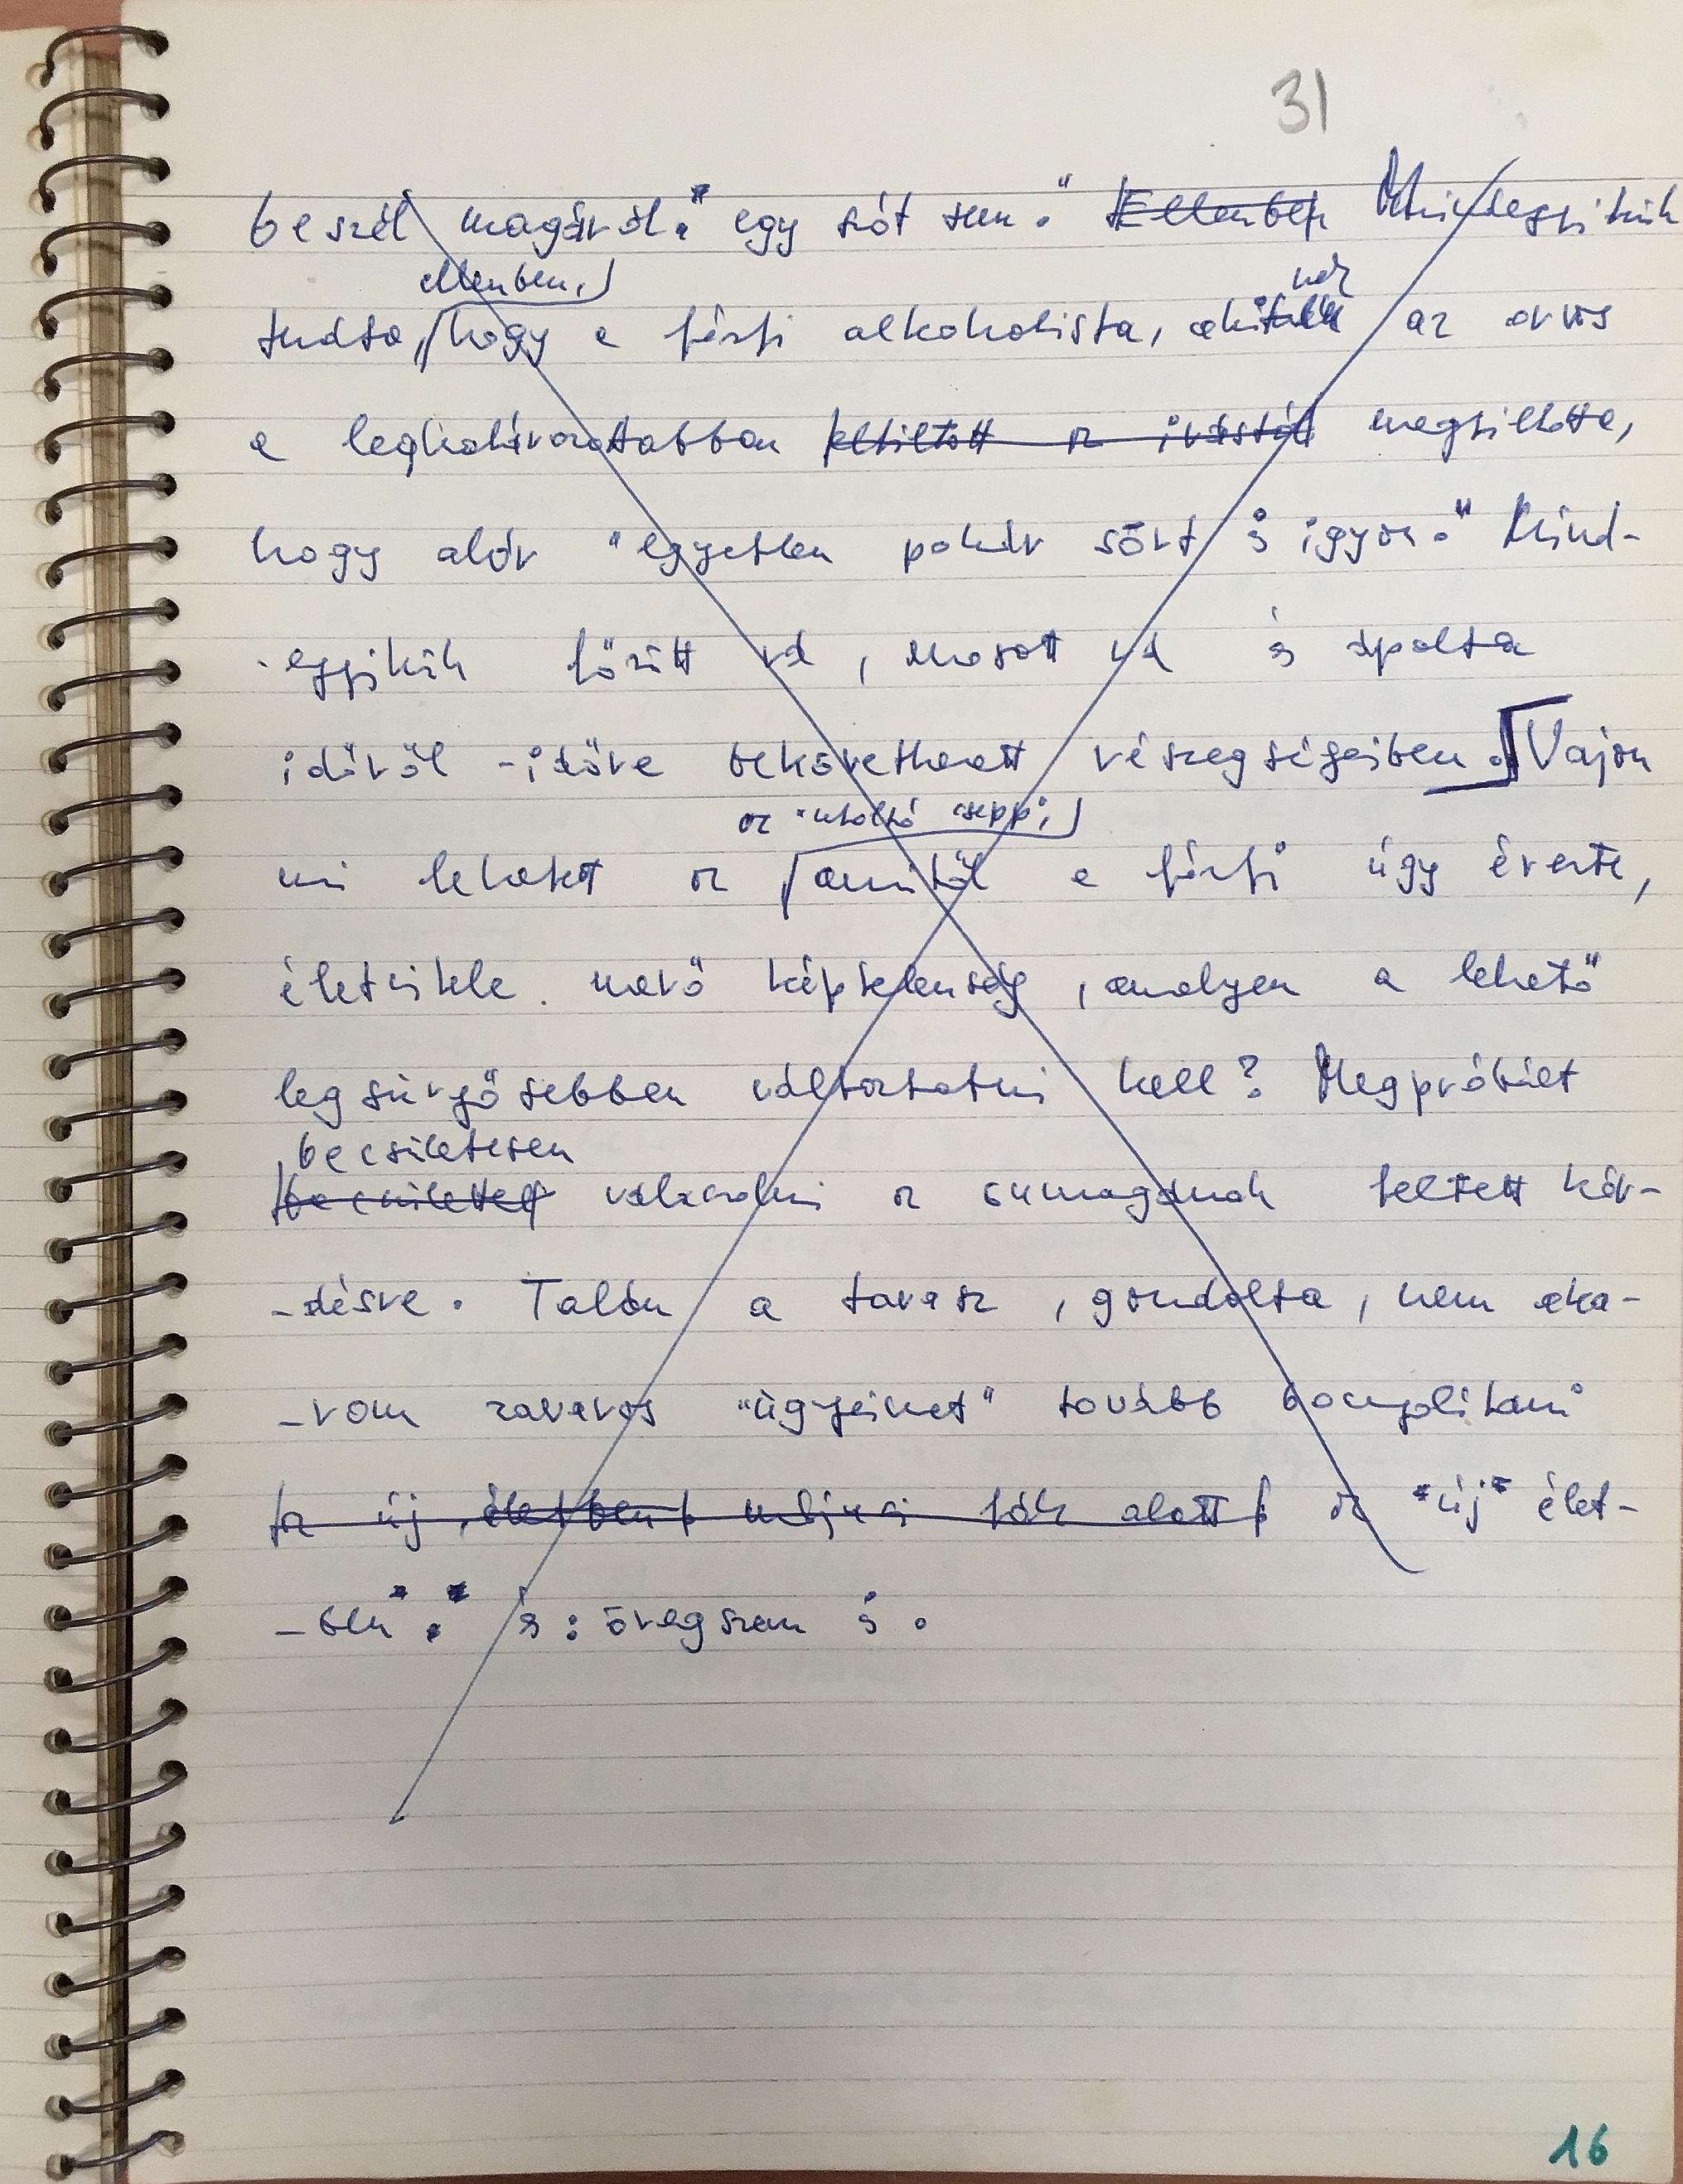 31
beszél magáról." egy szót sem." Ellenben Mindegyikük
ellenben,
tudta, hogy a férfi alkoholista, akinek az orvos
a leghatározottabban eltiltott az ivástól megtiltotta,
hogy akár "egyetlen pohár sört is igyon." Mind-
-egyikük főzött rá, mosott rá és ápolta
időről-időre bekövetkezett részegségeiben. Vajon
az "utolsó csepp",
mi lehetett az amitől a férfi úgy érezte,
életvitele merő képtelenség, amelyen a lehető
legsürgősebben változtatni kell? Megpróbált
becsületesen
becsülettel válaszolni az önmagának feltett kér-
-désre. Talán a tavasz, gondolta, nem aka-
-rom zavaros "ügyeimet" tovább bonyolítani
az új életben májusi fák alatt az "új" élet-
-ben"." és: öregszem is.
16